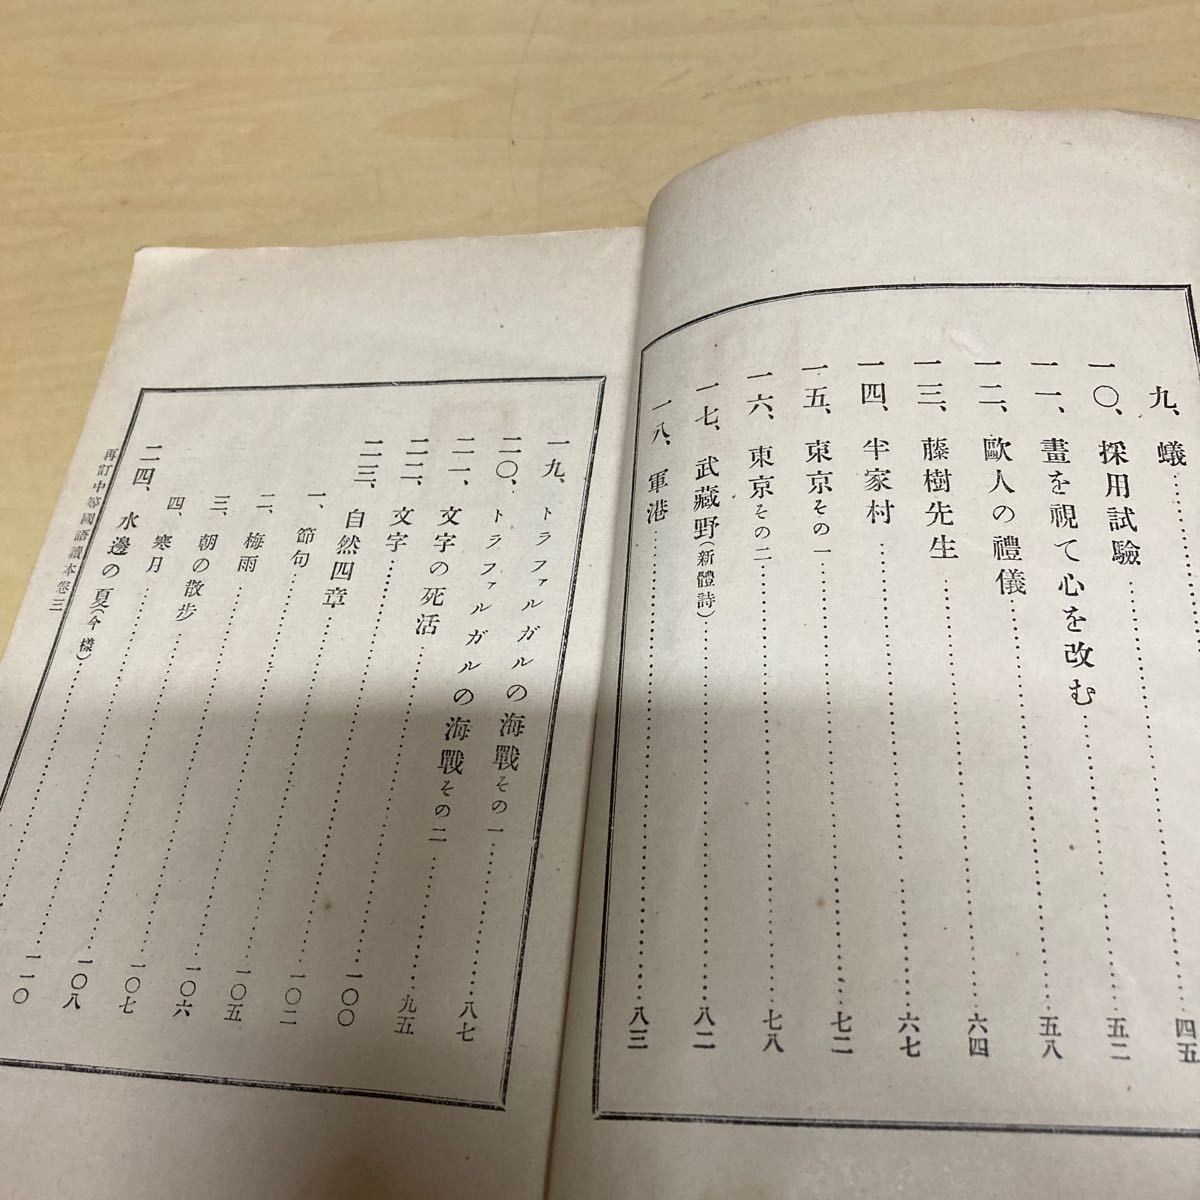 九、蟻
一〇、採用試驗……四五
一一、畫を視て心を改む……五二
一二、歐人の禮儀……五八
一三、藤樹先生……六四
一四、半家村……六七
一五、東京その一……七二
一六、東京その二……七八
一七、武藏野(新體詩)……八二
一八、軍港……八三
一九、トラファルガルの海戰その一……八七
二〇、トラファルガルの海戰その二……九五
二一、文字の死活……一〇〇
二二、文字……一〇二
二三、自然四章……一〇五
一、節句……一〇六
二、梅雨……一〇七
三、朝の散歩……一〇八
四、寒月……一一〇
二四、水邊の夏(今樣)……
再訂中等國語讀本卷三